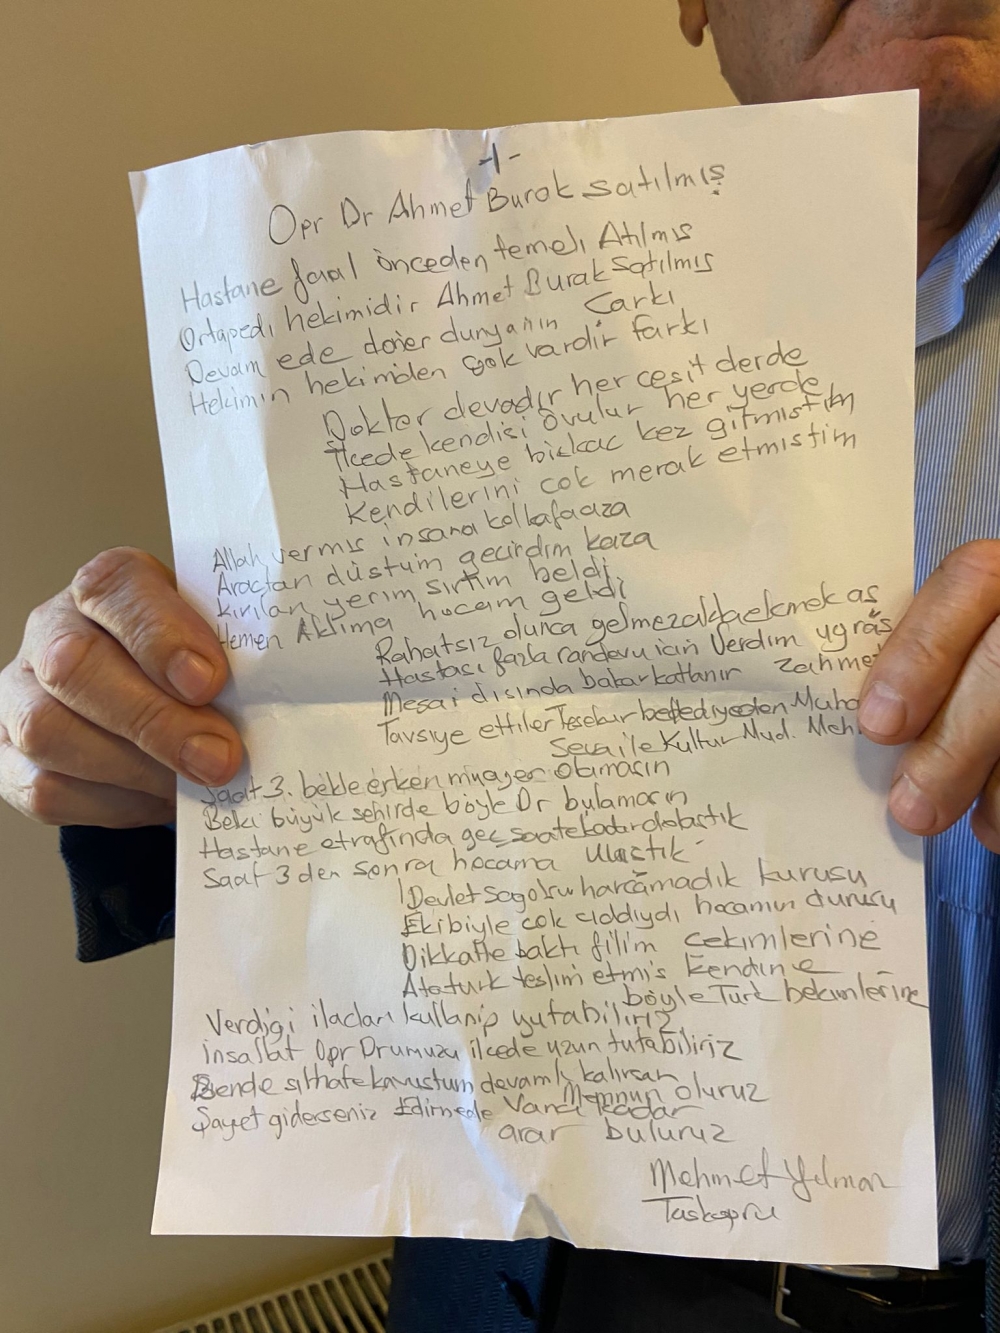 -1-
Opr Dr Ahmet Burak satılmış
Hastane faal önceden temeli Atılmıs
Ortapedi hekimidir Ahmet Burak Satılmıs
Devam ede döner dunyanın Carkı
Hekimin hekimden çok vardir farkı
Doktor devadır her cesit derde
İlcede kendisi övulur her yerde
Hastaneye birkac kez gitmistim
Kendilerini cok merak etmistim
Allah vermıs insana kol kafa
Araçtan düstüm gecirdim kaza
Kırılan yerim sırtım beldi
Hemen Aklıma hocam geldi
Rahatsız olunca gelmez ekmek as
Hastası fazla randevu icin Verdim ugras
Mesai disinda bakar katlanır Zahmet
Tavsıye ettiler Tesekur belediyeden Muha
Kultur Mud. Meh
Saat 3. bekle erken muayen olamasın
Belki büyük sehirde böyle Dr bulamasın
Hastane etrafında geç saate kadar dolastık
Saat 3 den sonra hocama Ulastık
Devlet sagolsun harcamadık kurusu
Ekibiyle cok ciddiydi hocamın durusu
Dikkatle baktı filim cekimlerine
Ataturk teslim etmis kendine
böyle Türk hekimlerine
Verdigi ilacları kullanip yutabiliriz
insallah Opr Drumuzu ilcede uzun tutabiliriz
Bende sıhhate kavustum devamlı kalırsan
Memnun oluruz
Şayet giderseniz Edirnede Vana kadar
arar buluruz
Mehmet Yılmaz
Taskopru